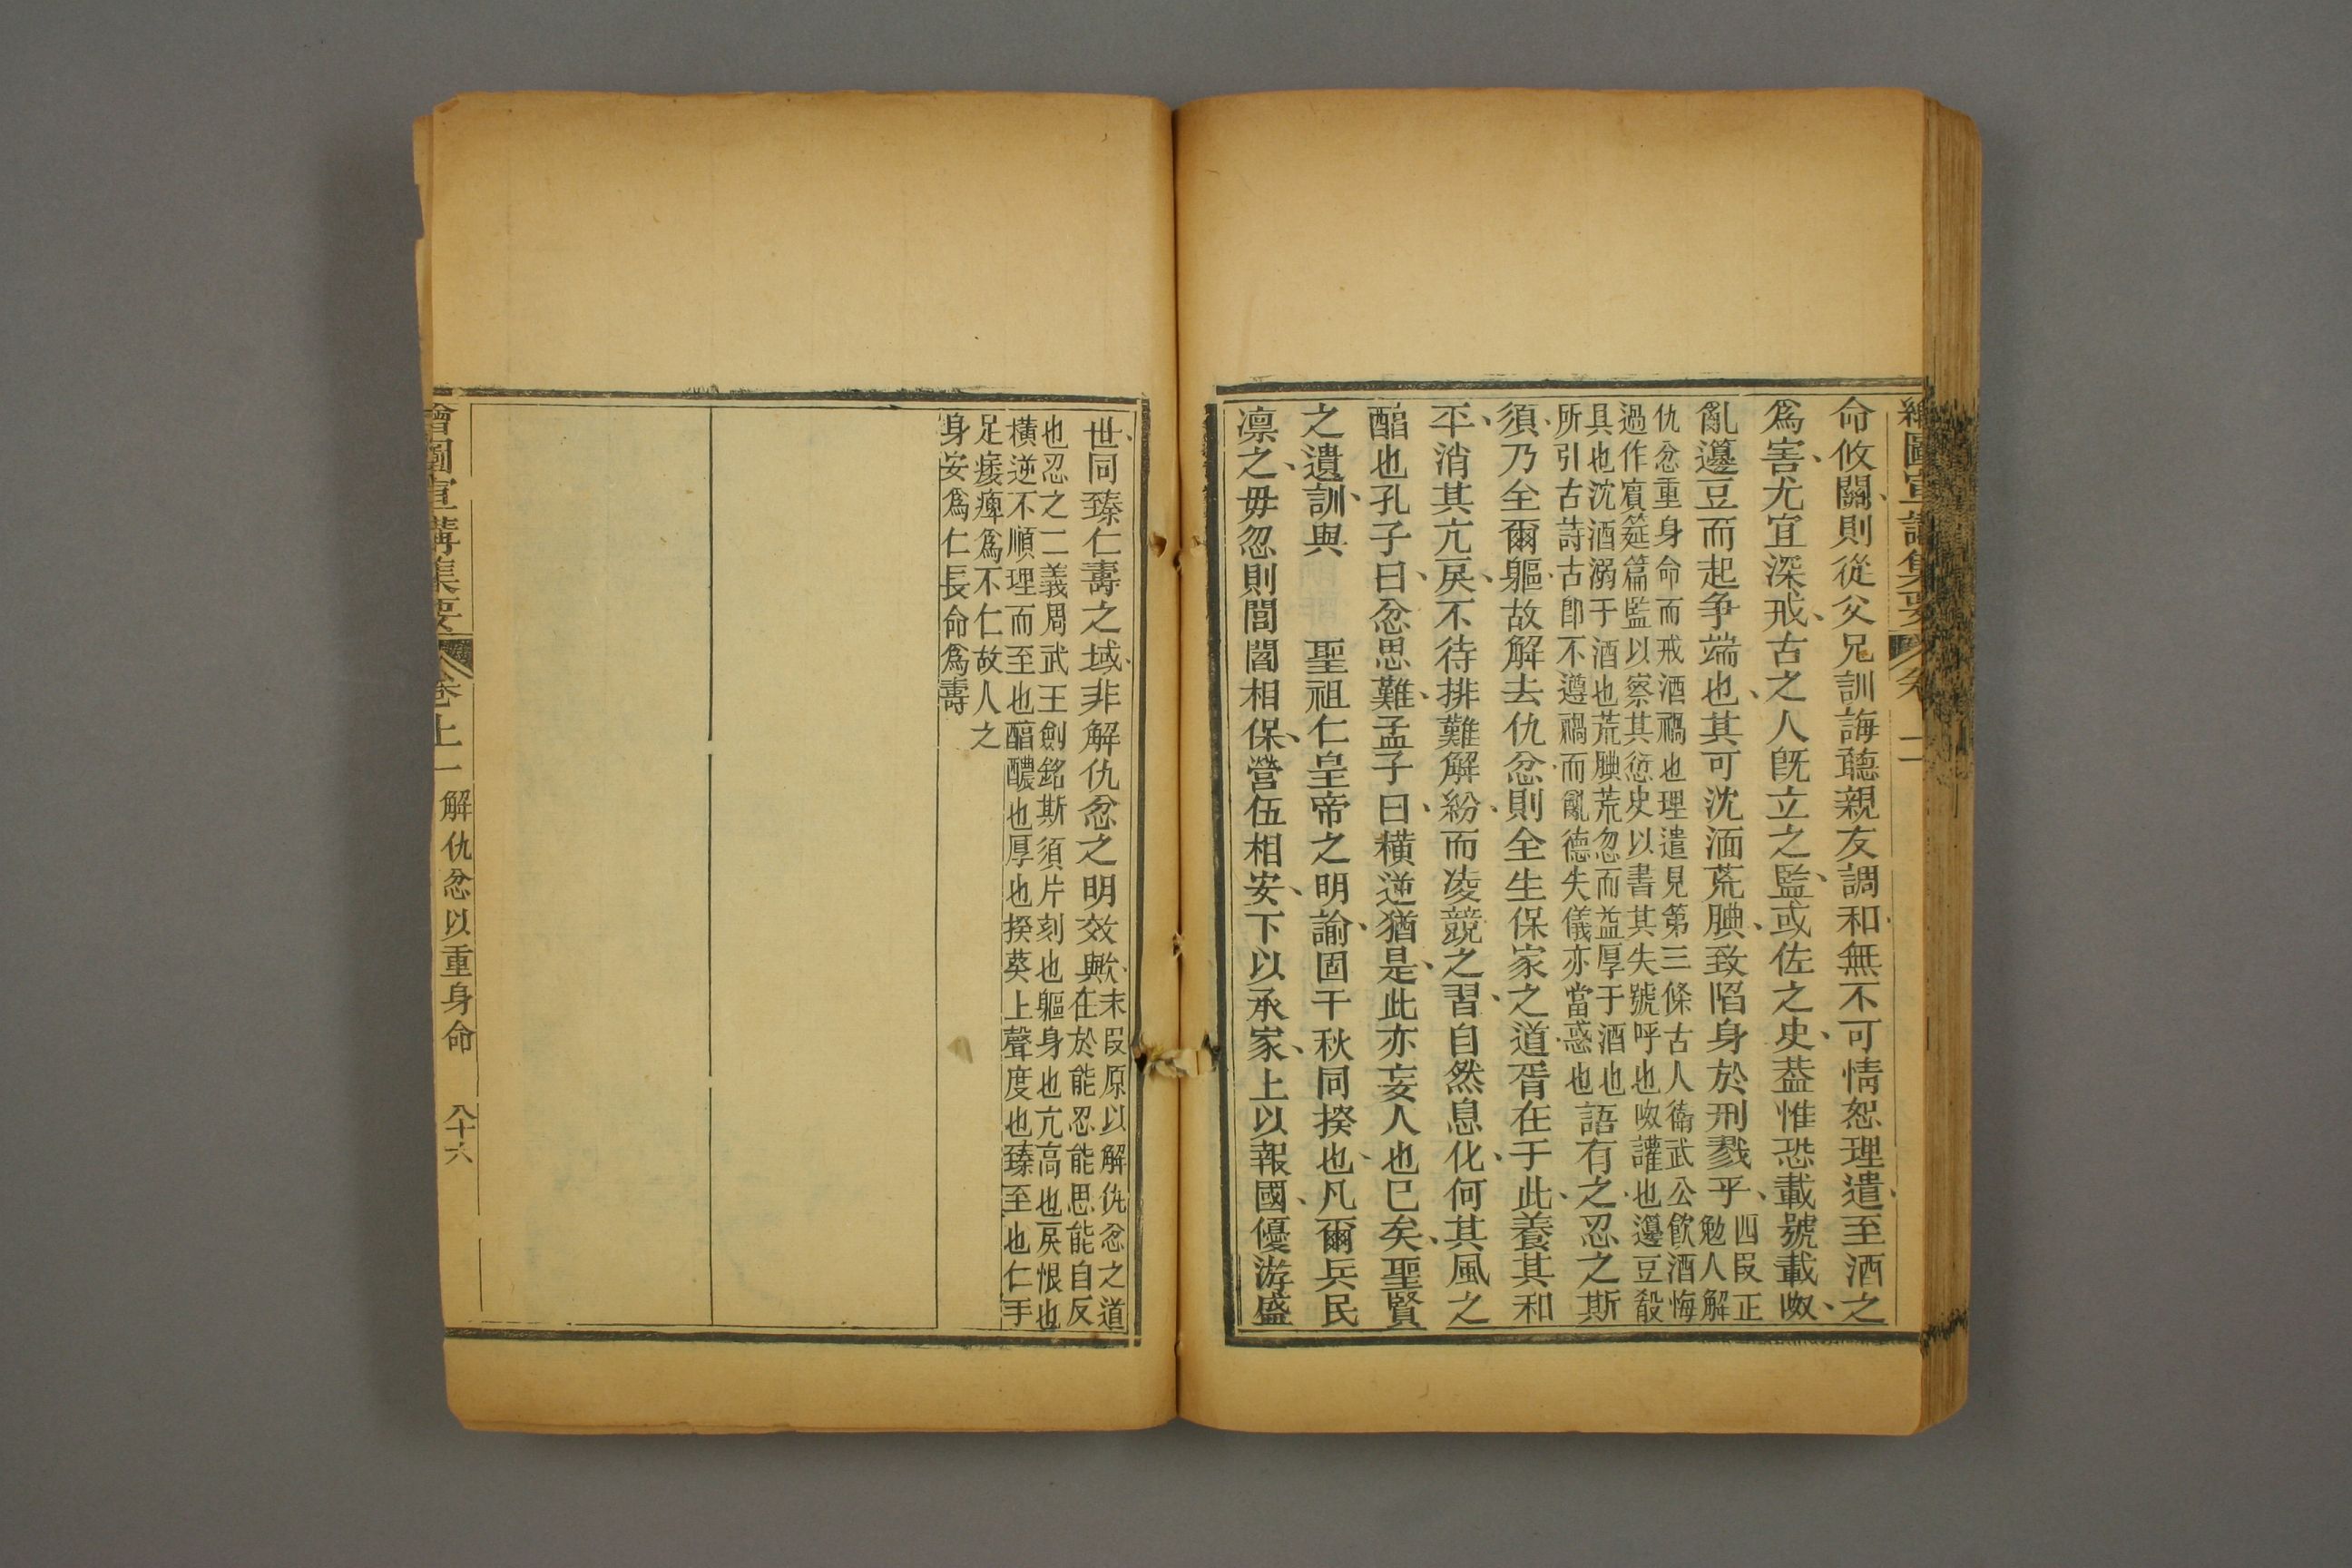 命攸關則從父兄訓誨聽親友調和無不可情恕理遣至酒之
爲害尤宜深戒古之人既立之監或佐之史葢惟恐載號載呶
亂籩豆而起爭端也其可沈湎荒腆致陷身於刑戮乎四叚正
勉人解
仇忿重身命而戒酒禍也理遣見第三條古人衛武公飲酒悔
過作賔筵篇監以察其愆史以書其失號呼也呶讙也籩豆殽
具也沈酒溺于酒也荒腆荒忽而益厚于酒也
所引古詩古卽不遵禍而亂德失儀亦當惑也
語有之忍之斯
須乃全爾軀故解去仇忿則全生保家之道胥在于此養其和
平消其亢戾不待排難解紛而凌競之習自然息化何其風之
醕也孔子曰忿思難孟子曰橫逆猶是此亦妄人也已矣聖賢
之遺訓與 聖祖仁皇帝之明諭固千秋同揆也凡爾兵民
凛之毋忽則閭閻相保營伍相安下以承家上以報國優游盛
世同臻仁壽之域非解仇忿之明效歟
末叚原以解仇忿之道
在於能忍能思能自反
也忍之二義周武王劍銘斯須片刻也軀身也亢高也戾恨也
橫逆不順理而至也醕醲也厚也揆葵上聲度也臻至也仁手
足痿痺爲不仁故人之
身安爲仁長命爲壽
繪圖宣講集要 卷上一 解仇忿以重身命 八十六